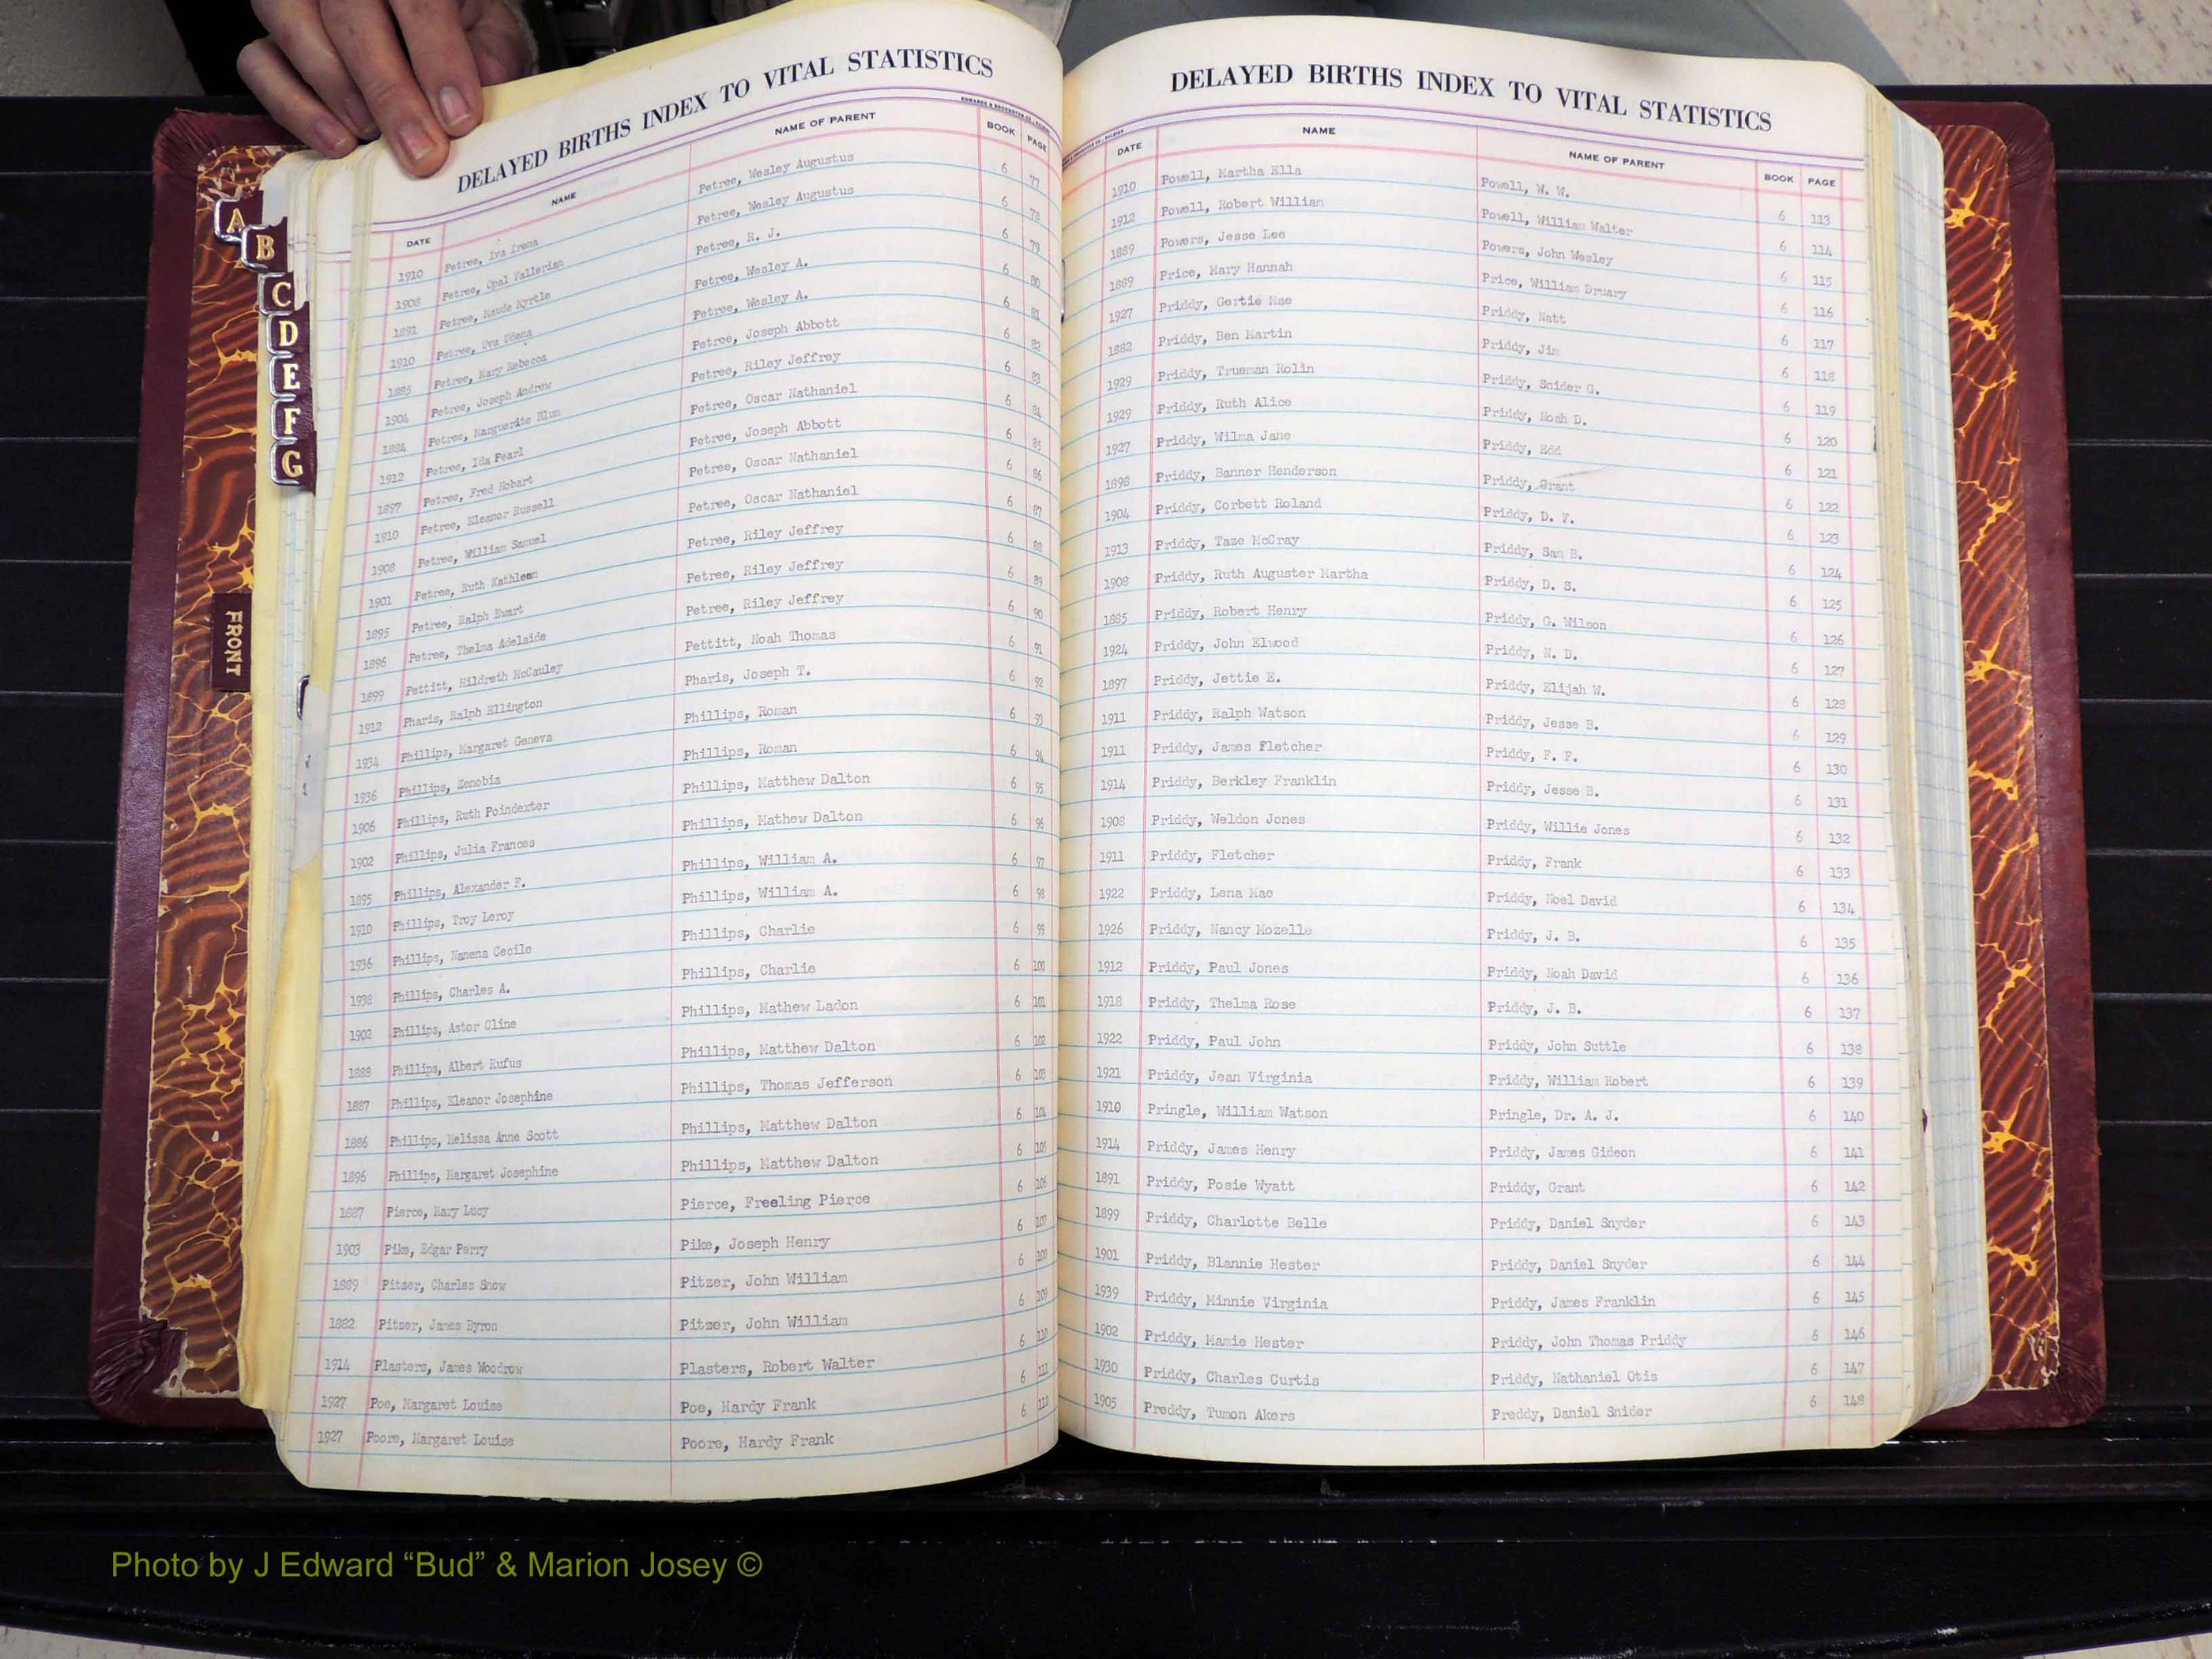 DELAYED BIRTHS INDEX TO VITAL STATISTICS
EDWARDS & BROUGHTON CO., RALEIGH
DATE NAME NAME OF PARENT BOOK PAGE
1910 Petree, Iva Irene Petree, Wesley Augustus 6 77
1908 Petree, Opal Vallerian Petree, Wesley Augustus 6 78
1891 Petree, Maude Myrtle Petree, R. J. 6 79
1910 Petree, Uva Udena Petree, Wesley A. 6 80
1885 Petree, Mary Rebecca Petree, Wesley A. 6 81
1904 Petree, Joseph Andrew Petree, Joseph Abbott 6 82
1884 Petree, Marguerite Blum Petree, Riley Jeffrey 6 83
1912 Petree, Ida Pearl Petree, Oscar Nathaniel 6 84
1897 Petree, Fred Hobart Petree, Joseph Abbott 6 85
1910 Petree, Eleanor Russell Petree, Oscar Nathaniel 6 86
1908 Petree, William Samuel Petree, Oscar Nathaniel 6 87
1901 Petree, Ruth Kathleen Petree, Riley Jeffrey 6 88
1895 Petree, Ralph Ewart Petree, Riley Jeffrey 6 89
1896 Petree, Thelma Adelaide Petree, Riley Jeffrey 6 90
1899 Pettitt, Hildreth McCauley Pettitt, Noah Thomas 6 91
1912 Pharis, Ralph Ellington Pharis, Joseph T. 6 92
1934 Phillips, Margaret Geneva Phillips, Roman 6 93
1936 Phillips, Zenobia Phillips, Roman 6 94
1906 Phillips, Ruth Poindexter Phillips, Matthew Dalton 6 95
1902 Phillips, Julia Frances Phillips, Mathew Dalton 6 96
1895 Phillips, Alexander F. Phillips, William A. 6 97
1910 Phillips, Troy Leroy Phillips, William A. 6 98
1936 Phillips, Nanena Cecile Phillips, Charlie 6 99
1938 Phillips, Charles A. Phillips, Charlie 6 100
1902 Phillips, Astor Cline Phillips, Mathew Ladon 6 101
1888 Phillips, Albert Rufus Phillips, Matthew Dalton 6 102
1887 Phillips, Eleanor Josephine Phillips, Thomas Jefferson 6 103
1886 Phillips, Melissa Anne Scott Phillips, Matthew Dalton 6 104
1896 Phillips, Margaret Josephine Phillips, Matthew Dalton 6 105
1887 Pierce, Mary Lucy Pierce, Freeling Pierce 6 106
1903 Pike, Edgar Perry Pike, Joseph Henry 6 107
1889 Pitzer, Charles Snow Pitzer, John William 6 108
1882 Pitzer, James Byron Pitzer, John William 6 109
1914 Plasters, James Woodrow Plasters, Robert Walter 6 110
1927 Poe, Margaret Louise Poe, Hardy Frank 6 111
1927 Poore, Margaret Louise Poore, Hardy Frank 6 112
DELAYED BIRTHS INDEX TO VITAL STATISTICS
DATE NAME NAME OF PARENT BOOK PAGE
1910 Powell, Martha Ella Powell, W. W. 6 113
1912 Powell, Robert William Powell, William Walter 6 114
1889 Powers, Jesse Lee Powers, John Wesley 6 115
1889 Price, Mary Hannah Price, William Druary 6 116
1927 Priddy, Gertie Mae Priddy, Natt 6 117
1882 Priddy, Ben Martin Priddy, Jim 6 118
1929 Priddy, Trueman Rolin Priddy, Snider G. 6 119
1929 Priddy, Ruth Alice Priddy, Noah D. 6 120
1927 Priddy, Wilma Jane Priddy, Edd 6 121
1898 Priddy, Banner Henderson Priddy, Grant 6 122
1904 Priddy, Corbett Roland Priddy, D. F. 6 123
1913 Priddy, Taze McCray Priddy, Sam B. 6 124
1908 Priddy, Ruth Auguster Martha Priddy, D. S. 6 125
1885 Priddy, Robert Henry Priddy, G. Wilson 6 126
1924 Priddy, John Elwood Priddy, N. D. 6 127
1897 Priddy, Jettie E. Priddy, Elijah W. 6 128
1911 Priddy, Ralph Watson Priddy, Jesse B. 6 129
1911 Priddy, James Fletcher Priddy, F. F. 6 130
1914 Priddy, Berkley Franklin Priddy, Jesse B. 6 131
1908 Priddy, Weldon Jones Priddy, Willie Jones 6 132
1911 Priddy, Fletcher Priddy, Frank 6 133
1922 Priddy, Lena Mae Priddy, Noel David 6 134
1926 Priddy, Nancy Mozelle Priddy, J. B. 6 135
1912 Priddy, Paul Jones Priddy, Noah David 6 136
1918 Priddy, Thelma Rose Priddy, J. B. 6 137
1922 Priddy, Paul John Priddy, John Suttle 6 138
1921 Priddy, Jean Virginia Priddy, William Robert 6 139
1910 Pringle, William Watson Pringle, Dr. A. J. 6 140
1914 Priddy, James Henry Priddy, James Gideon 6 141
1891 Priddy, Posie Wyatt Priddy, Grant 6 142
1899 Priddy, Charlotte Belle Priddy, Daniel Snyder 6 143
1901 Priddy, Blannie Hester Priddy, Daniel Snyder 6 144
1939 Priddy, Minnie Virginia Priddy, James Franklin 6 145
1902 Priddy, Mamie Hester Priddy, John Thomas Priddy 6 146
1930 Priddy, Charles Curtis Priddy, Nathaniel Otis 6 147
1905 Preddy, Tumon Akers Preddy, Daniel Snider 6 148
A
B
C
D
E
F
G
FRONT
Photo by J Edward “Bud” & Marion Josey ©